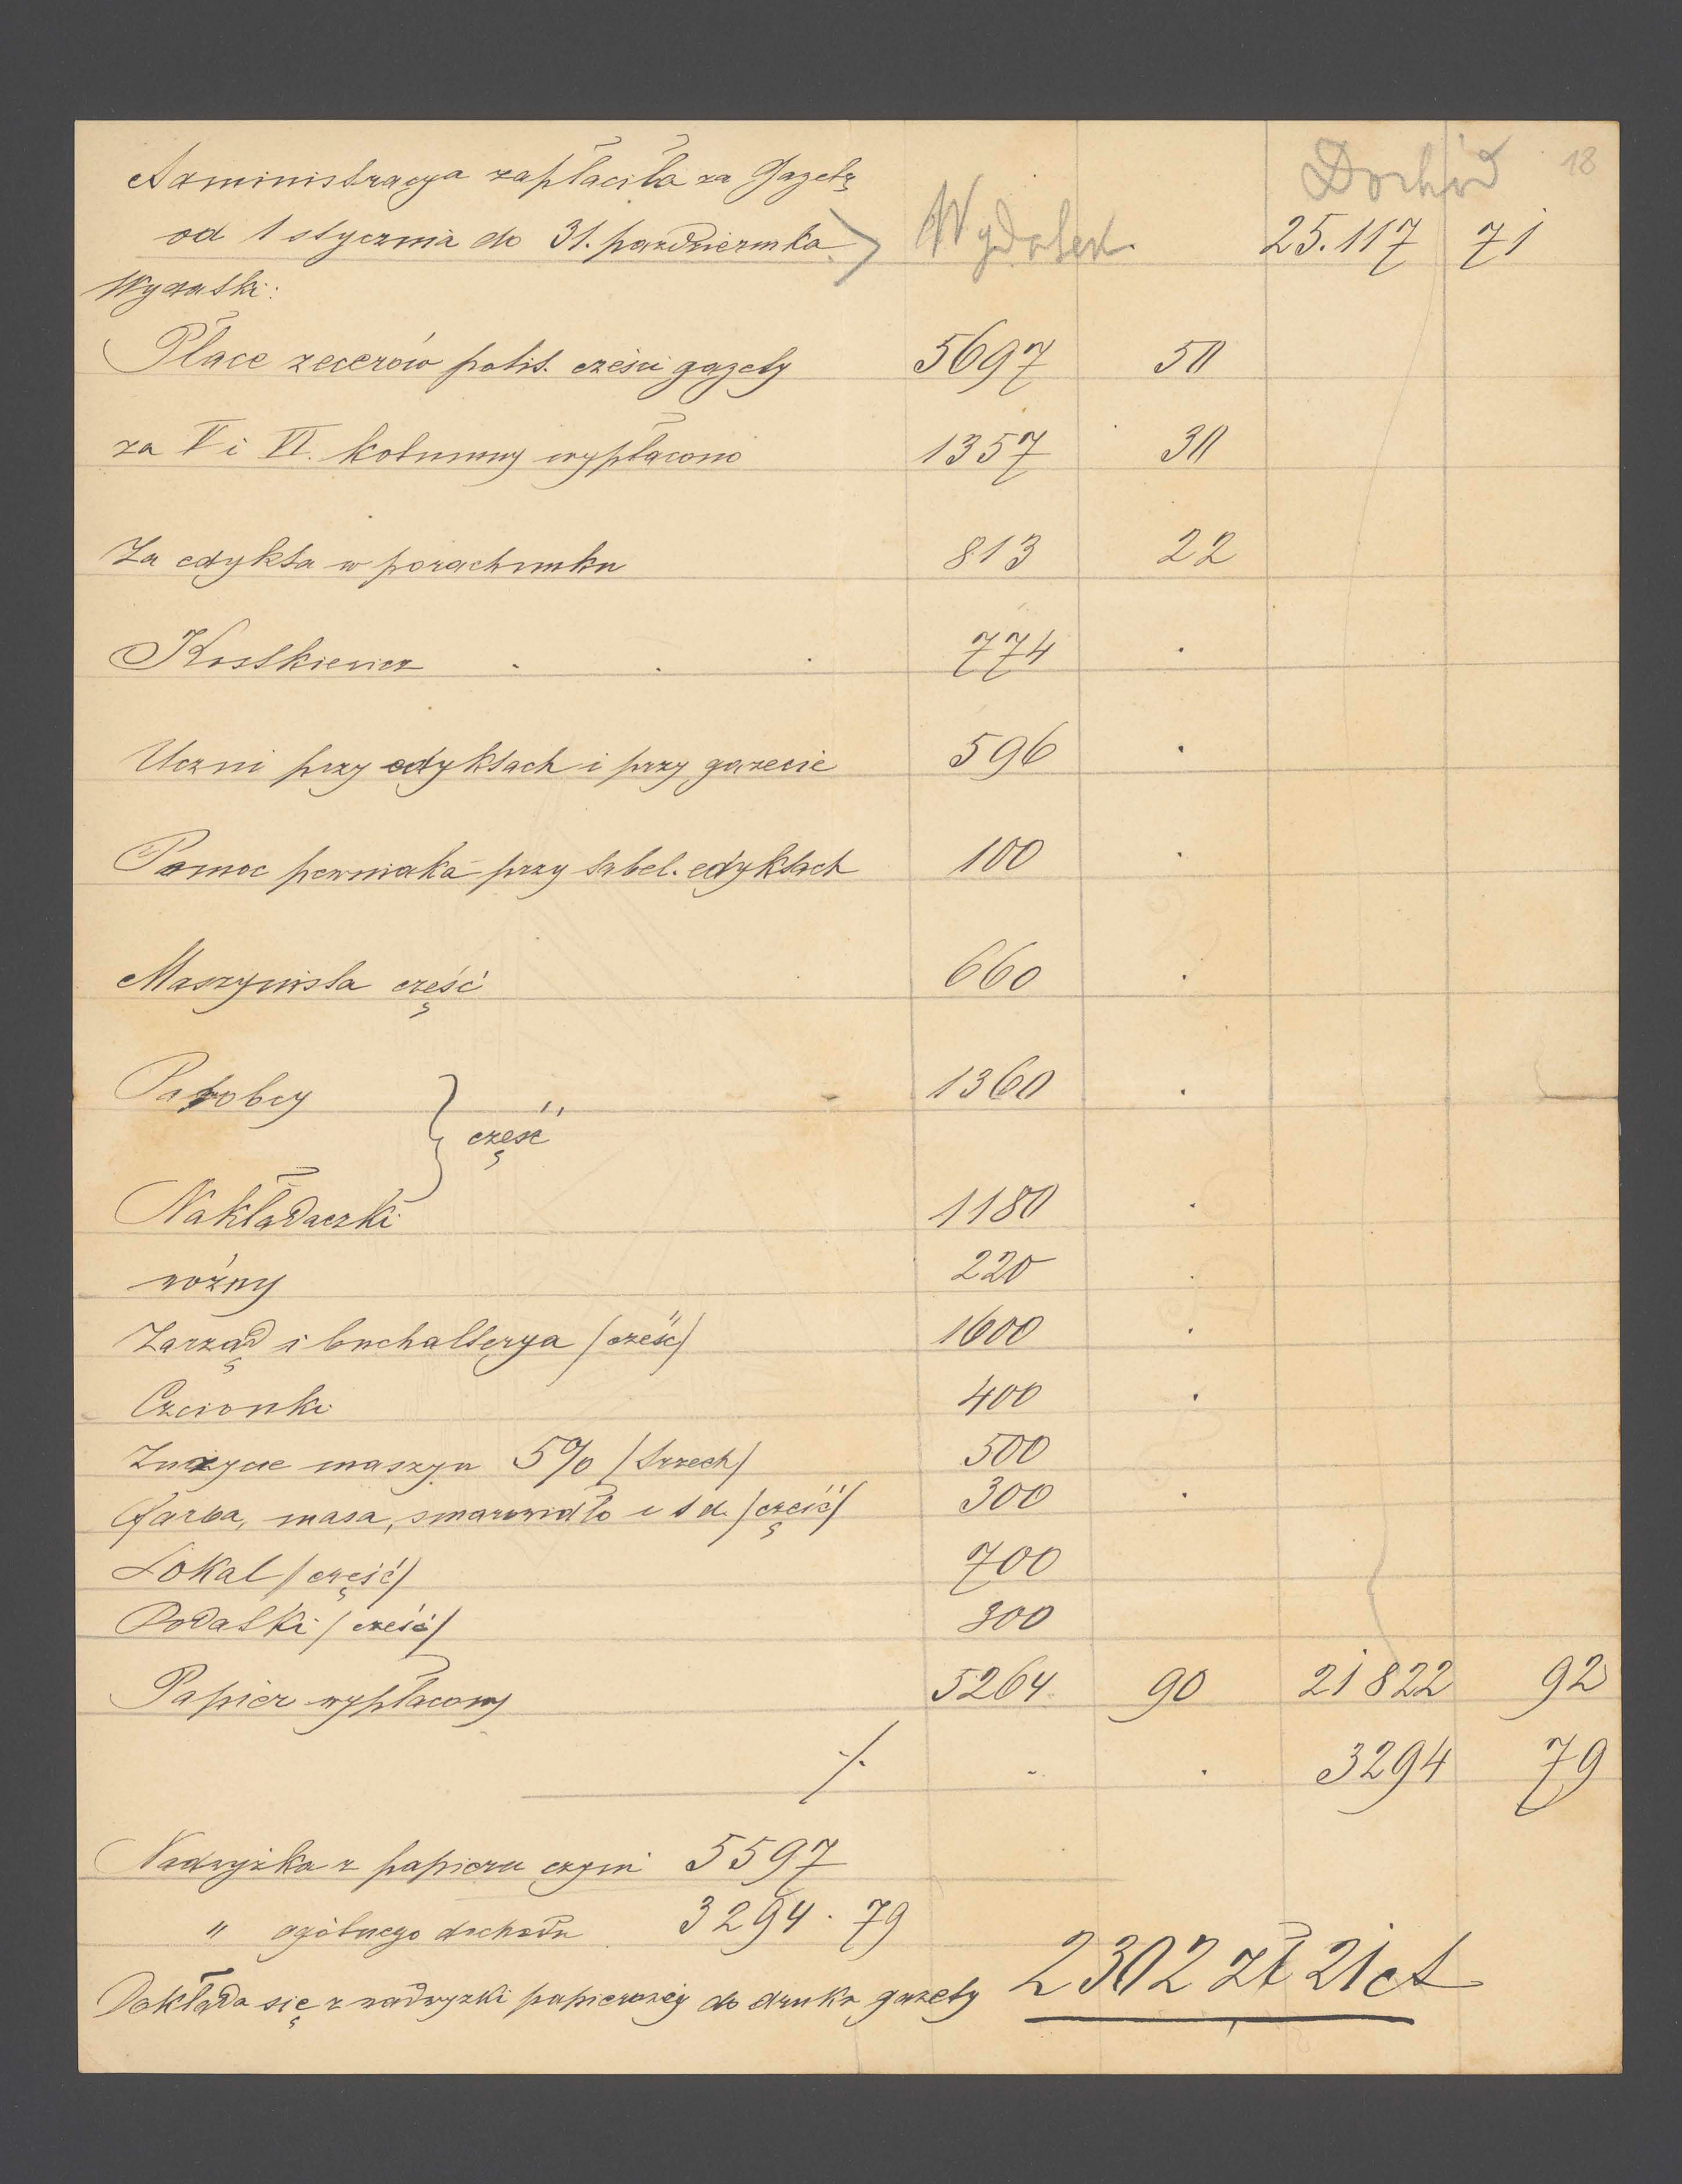 18
Dochód
Administracya zapłaciła za Gazetę
od 1 stycznia do 31. października Wydatek. 25.117 71
Wydatki:
Płace zecerów polit. części gazety 5697 50
za V i VI. kolumny wypłacono 1357 30
Za edykta w porachunku 813 22
Kostkiewicz . . . 774 .
Uczni przy edyktach i przy gazecie 596 .
Pomoc pewniaka przy tabel. edyktach 100 .
Maszynista część 660 .
Parobcy 1360 .
część
Nakładaczki 1180 .
różny 220 .
Zarząd i buchalterya /część/ 1600 .
Czcionki 400 .
Zużycie maszyn 5% /trzech/ 500
Farba, masa, smarowidło i t d. /część/ 300 .
Lokal /część/ 700
Podatki /część/ 300
Papier wypłacony 5264 90 21822 92
./. . . 3294 79
Nadwyżka z papieru czyni 5597
" ogólnego dochodu 3294 . 79
Dokłada się z nadwyżki papierowéj do druku gazety 2302 zł 21 ct